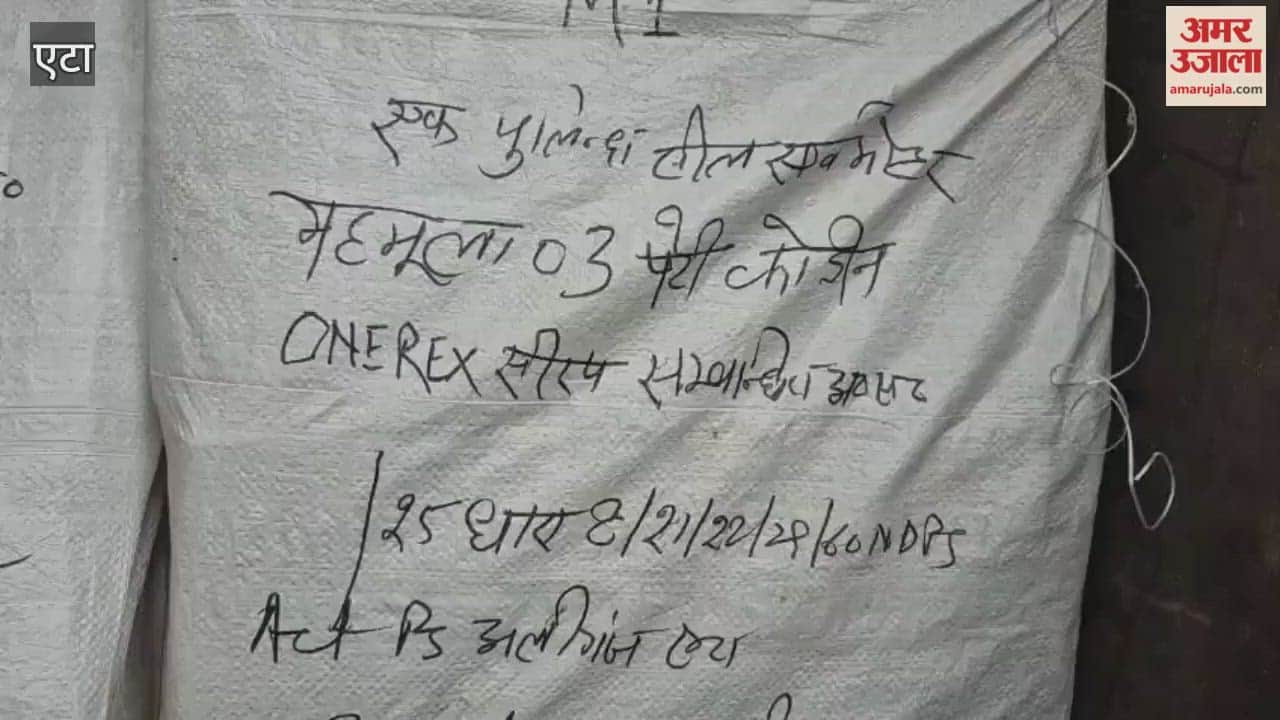 एटा
अमर
उजाला
amarujala.com
M1
एक पुलिन्दा सील सर्वमोहर
महमूला 03 पेटी कोडीन
ONEREX सीरप सम्बन्धित
/25 धारा 8/21/22/29/60 NDPS
Act PS अलीगंज एटा